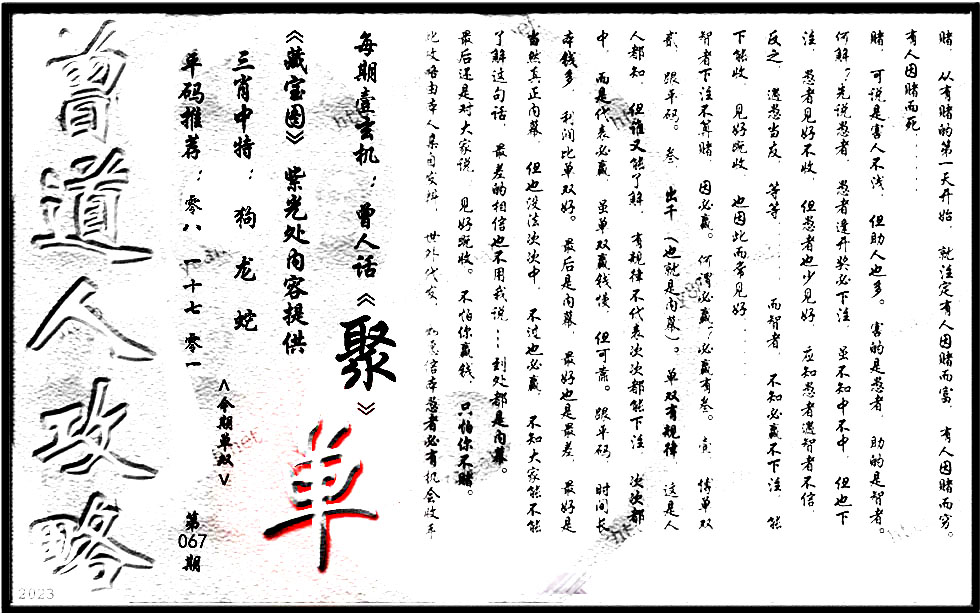 赌，从有赌的第一天开始，就注定有人因赌而富，有人因赌而穷。
有人因赌而死......
赌，可说是害人不浅，但助人也多。害的是愚者，助的是智者。
何解？先说愚者，愚者逢开奖必下注，虽不知中不中，但也下
注，愚者见好不收，但愚者也少见好，应知愚者遇智者不信，
反之，遇愚当皮，等等......而智者，不知必赢不下注，能
下能收，见好就收，也因此而常见好......
智者下注不算赌，因必赢。何谓必赢？必赢有叁。壹，博单双
贰，跟平码。叁，出千（也就是内幕）。单双有规律，这是人
人都知，但谁又能了解，有规律不代表次次都能下注，次次都
中，而是代表必赢，虽单双赢钱慢，但可靠。跟平码，时间长
本钱多，利润比单双好。最后是内幕，最好也是最差，最好是
当然真正内幕，但也没法次次中，不过也必赢，不知大家能不能
了解这句话，最差的相信也不用我说...到处都是内幕。
最后还是对大家说，见好就收。不怕你赢钱，只怕你不赌。
此攻略由本人集团发烘，世外代友，
信本愚者必有机会收年
每期壹玄机：曾人话《聚》
《藏宝图》紫光处内容提供
三肖中特：狗 龙 蛇
单码推荐：零八 一十七 零一
<今期单双>
单
第067期
曾道人攻略
2023